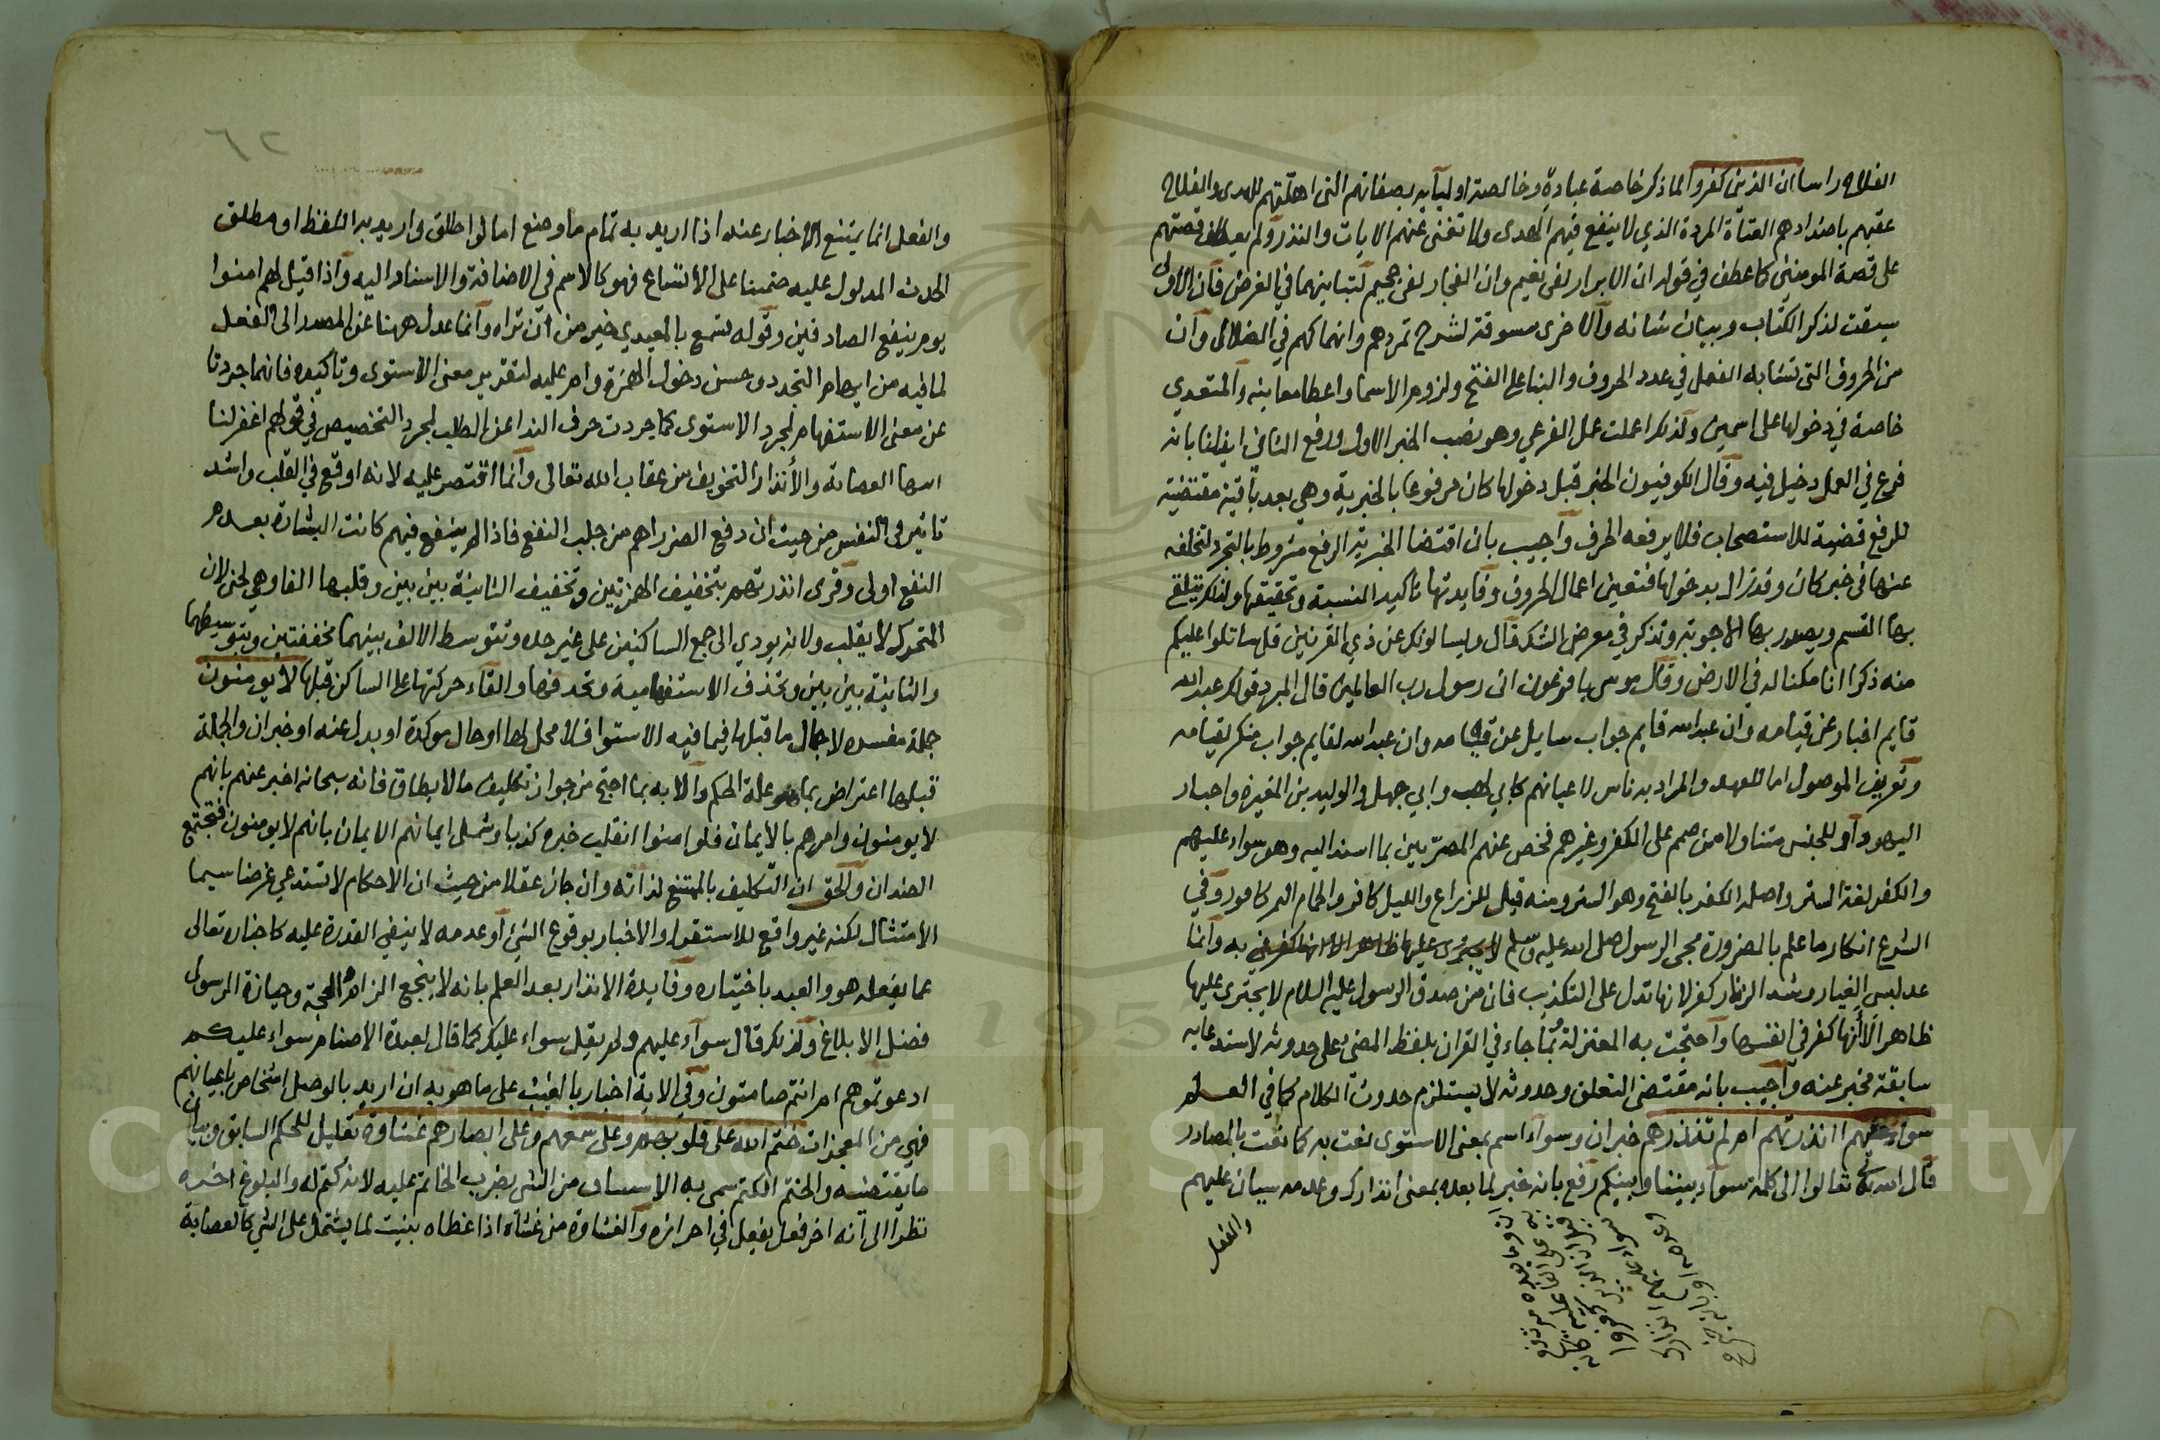 الفلاح راسا ان الذين كفروا لما ذكر خاصة عباده وخالصة اوليآيه بصفاتهم التى اهلتهم للهدى والفلاح
عقبهم باضدادهم العتاة المردة الذي لا ينفع فيهم الهدى ولا تغنى عنهم الايات والنذر ولم يعطف قصتهم
على قصة المومنين كما عطف في قوله ان الابرار لفى نعيم وان الفجار لفى جحيم لتباينهما في الغرض فان الاولى
سيقت لذكر الكتاب وبيان شانه والاخرى مسوقة لشرح تمردهم وانهماكهم في الضلال وان
من الحروف التى تشابه الفعل في عدد الحروف والبنا على الفتح ولزوم الاسما واعطا معانيه والمتعدي
خاصة في دخولها على اسمين ولذلك اعملت عمل الفرعي وهو نصب الجزء الاول ورفع الثانى ايذانا بانه
فرع في العمل دخيل فيه وقال الكوفيون الخبر قبل دخولها كان مرفوعا بالخبرية وهي بعد باقية مقتضية
للرفع قضية للاستصحاب فلا يرفعه الحرف واجيب بان اقتضا الخبرية الرفع مشروط بالتجرد لتخلفه
عنها في خبر كان وقد زال بدخولها فتعين اعمال الحروف وفايدتها تاكيد النسبة وتحقيقها ولذلك يتلقى
بها القسم ويصدر بها الاجوبة وتذكر في معرض الشك قال ويسالونك عن ذي القرنين قل ساتلوا عليكم
منه ذكرا انا مكنا له في الارض وقال موسى يا فرعون انى رسول رب العالمين قال المبرد قولك عبد الله
قايم اخبار عن قيامه وان عبد الله قايم جواب سايل عن قيامه وان عبد الله لقايم جواب منكر لقيامه
وتعريف الموصول اما للعهد والمراد به ناس باعيانهم كابي لهب وابي جهل والوليد بن المغيرة واحبار
اليهود او للجنس متناولا من صمم على الكفر وغيرهم فخص عنهم المصرين بما اسند اليه وهو سواء عليهم
والكفر لغة الستر واصله الكفر بالفتح وهو الستر ومنه قيل للزراع والليل كافر ولكمام الثمر كافور وفي
الشرع انكار ما علم بالضرورة مجى الرسول صلى الله عليه وسلم به وانما
عد لبس الغيار وشد الزنار كفرا لانها تدل على التكذيب فان من صدق الرسول عليه السلام لا يجترى عليها
ظاهرا لا لانها كفر في انفسها واحتجت به المعتزلة بما جاء في القران بلفظ المضي على حدوثه لاستدعايه
سابقة مخبر عنه واجيب بانه مقتضى التعلق وحدوثه لا يستلزم حدوث الكلام كما في العلم
سواء عليهم اانذرتهم ام لم تنذرهم خبر ان وسواء اسم بمعنى الاستوى نعت به كما نعت بالمصادر
قال الله تعالى تعالوا الى كلمة سوآء بيننا وبينكم رفع بانه خبر لما بعده بمعنى انذارك وعدمه سيان عليهم
والفعل
والفعل انما يمتنع الاخبار عنه اذا اريد به تمام ما وضع اما لو اطلق واريد به اللفظ او مطلق
الحدث المدلول عليه ضمنا على الاتساع فهو كالاسم في الاضافة والاسناد اليه واذا قيل لهم امنوا
يوم ينفع الصادقين وقوله تسمع بالمعيدي خير من ان تراه وانما عدل ههنا عن المصدر الى الفعل
لما فيه من ايهام التجدد وحسن دخول الهمزة وام عليه لتقرير معنى الاستوى وتاكيده فانهما جردتا
عن معنى الاستفهام لمجرد الاستوى كما جردت حرف الندا عن الطلب لمجرد التخصيص في قولهم اغفر لنا
ايتها العصابة والانذار التخويف من عقاب الله تعالى وانما اقتصر عليه لانه اوقع في القلب واشد
تاثيرا فى النفس من حيث ان دفع الضرر اهم من جلب النفع فاذا لم ينفع فيهم كانت البشارة بعدم
النفع اولى وقرى انذرتهم بتخفيف الهمزتين وتخفيف الثانية بين بين وقلبها الفا وهي لحن لان
المتحركة لا يقلب ولانه يودي الى جمع الساكنين على غير حده وتتوسط الالف بينهما مخففتين وبتوسيطها
والثانية بين بين وبحذف الاستفهامية وبحذفها والقاء حركتها على الساكن قبلها لا يومنون
جملة مفسرة لاجمال ما قبلها فيما فيه الاستوا فلا محل لها او حال موكدة او بدل عنه او خبر ان والجملة
قبلها اعتراض بما هو علة الحكم والاية مما احتج من جواز تكليف مالا يطاق فانه سبحانه اخبر عنهم بانهم
لا يومنون وامرهم بالايمان فلو امنوا انقلب خبره كذبا وشمل ايمانهم الايمان بانهم لا يومنون فتجتمع
الضدان والحق ان التكليف بالممتنع لذاته وان جاز عقلا من حيث ان الاحكام لا تستدعي غرضا سيما
الامتثال لكنه غير واقع للاستقرا والاخبار بوقوع الشئ او عدمه لا ينفي القدرة عليه كاخباره تعالى
عما يفعله هو والعبد باختياره وفايدة الانذار بعد العلم بانه لا ينجع الزام الحجة وحيازة الرسول
فضل الابلاغ ولذلك قال سوآء عليهم ولم يقل سواء عليك كما قال لعبدة الاصنام سواء عليكم
ادعوتموهم ام انتم صامتون وفي الاية اخبار بالغيب على ما هو به ان اريد بالموصول اشخاص باعيانهم
فهي من المعجزات ختم الله على قلوبهم وعلى سمعهم وعلى ابصارهم غشاوة تعليل للحكم السابق وبيان
ما يقتضيه والختم الكتم سمى به الاستيثاق من الشى بضرب الخاتم عليه لانه كتم له والبلوغ اخره
نظرا الى انه اخر فعل يفعل في احرازه والغشاوة من غشاه اذا غطاه بنيت لما يشتمل على الشي كالعصابة